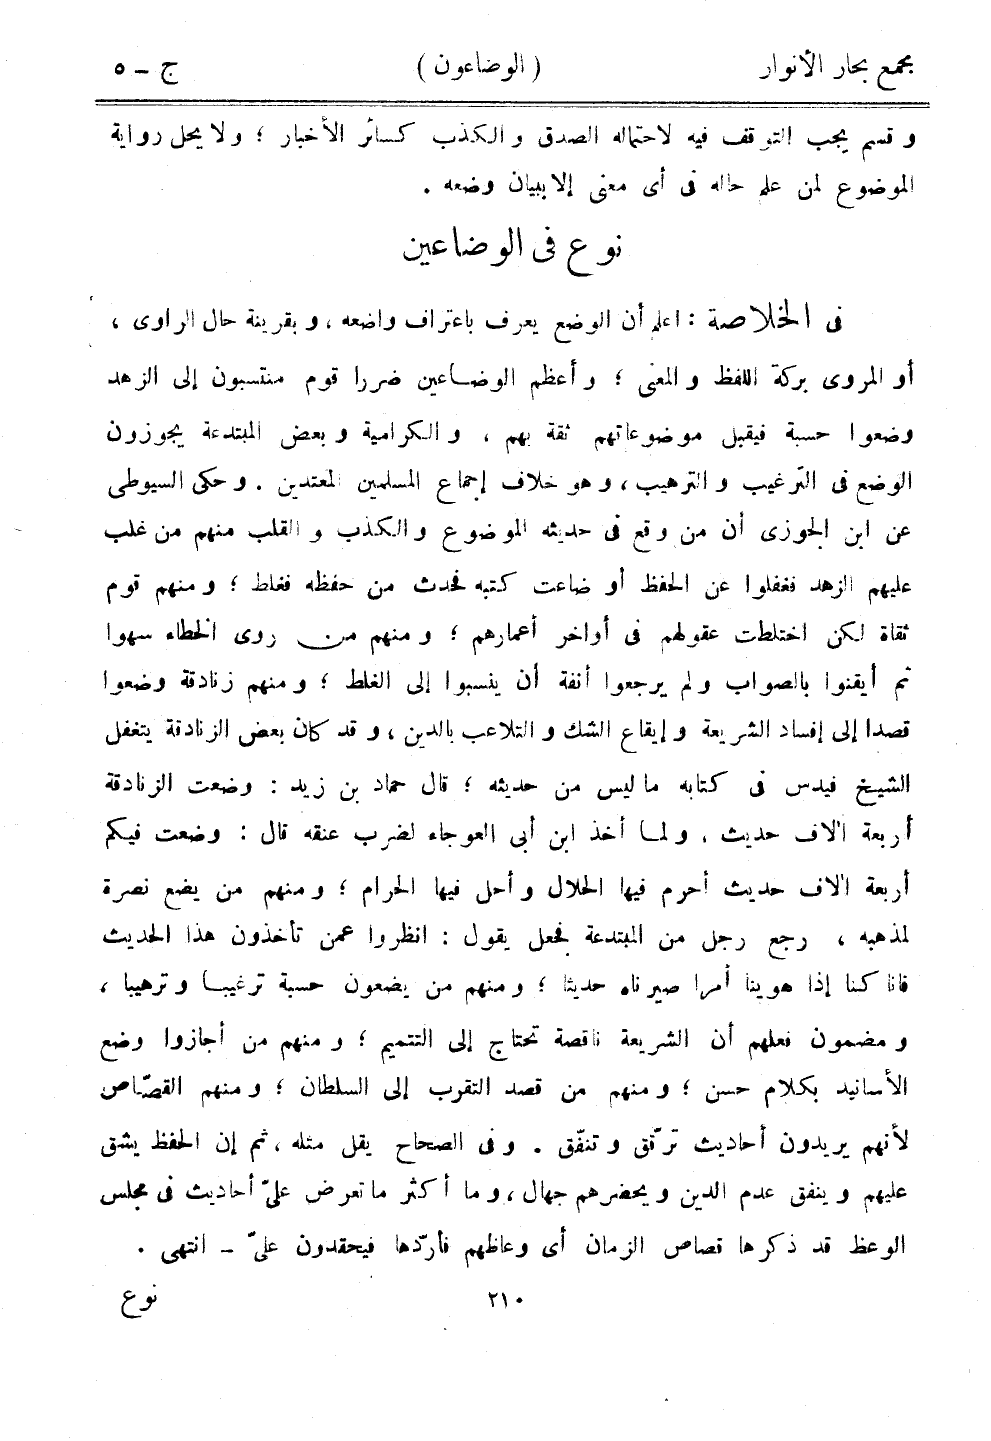 مجمع بحار الأنوار ( الوضاعون ) ج - ٥
و قسم يجب التوقف فيه لاحتماله الصدق و الكذب كسائر الأخبار ؛ و لا يحل رواية
الموضوع لمن علم حاله فى أى معنى إلا ببيان وضعه .
نوع فى الوضاعين
فى الخلاصة : اعلم أن الوضع يعرف باعتراف واضعه ، و بقرينة حال الراوى ،
أو المروى بركة اللفظ و المعنى ؛ و أعظم الوضاعين ضررا قوم منتسبون إلى الزهد
وضعوا حسبة فيقبل موضوعاتهم ثقة بهم ، و الكرامية و بعض المبتدعة يجوزون
الوضع فى الترغيب و الترهيب ، و هو خلاف إجماع المسلمين المعتدين . و حكى السيوطى
عن ابن الجوزى أن من وقع فى حديثه الموضوع و الكذب و القلب منهم من غلب
عليهم الزهد فغفلوا عن الحفظ أو ضاعت كتبه فحدث من حفظه فغلط ؛ و منهم قوم
ثقاة لكن اختلطت عقولهم فى أواخر أعمارهم ؛ و منهم من روى الخطاء سهوا
ثم أيقنوا بالصواب و لم يرجعوا أنفة أن ينسبوا إلى الغلط ؛ و منهم زنادقة وضعوا
قصدا إلى إفساد الشريعة و إيقاع الشك و التلاعب بالدين ، و قد كان بعض الزنادقة يتغفل
الشيخ فيدس فى كتابه ما ليس من حديثه ؛ قال حماد بن زيد : وضعت الزنادقة
أربعة آلاف حديث . و لما أخذ ابن أبى العوجاء لضرب عنقه قال : وضعت فيكم
أربعة آلاف حديث أحرم فيها الحلال و أحل فيها الحرام ؛ و منهم من يضع نصرة
لمذهبه ، رجع رجل من المبتدعة فجعل يقول : انظروا عمن تأخذون هذا الحديث
فانا كنا إذا هوينا أمرا صيرناه حديثا ؛ و منهم من يضعون حسبة ترغيبا و ترهيبا ،
و مضمون فعلهم أن الشريعة ناقصة تحتاج إلى التتميم ؛ و منهم من أجازوا وضع
الأسانيد بكلام حسن ؛ و منهم من قصد التقرب إلى السلطان ؛ و منهم القصّاص
لأنهم يريدون أحاديث ترقّق و تنفّق . و فى الصحاح يقل مثله ، ثم إن الحفظ يشق
عليهم و ينفق عدم الدين و يحضرهم جهال ، و ما أكثر ما تعرض علىّ أحاديث فى مجلس
الوعظ قد ذكرها قصاص الزمان أى وعاظهم فأردّها فيحقدون علىّ - انتهى .
٢١٠ نوع